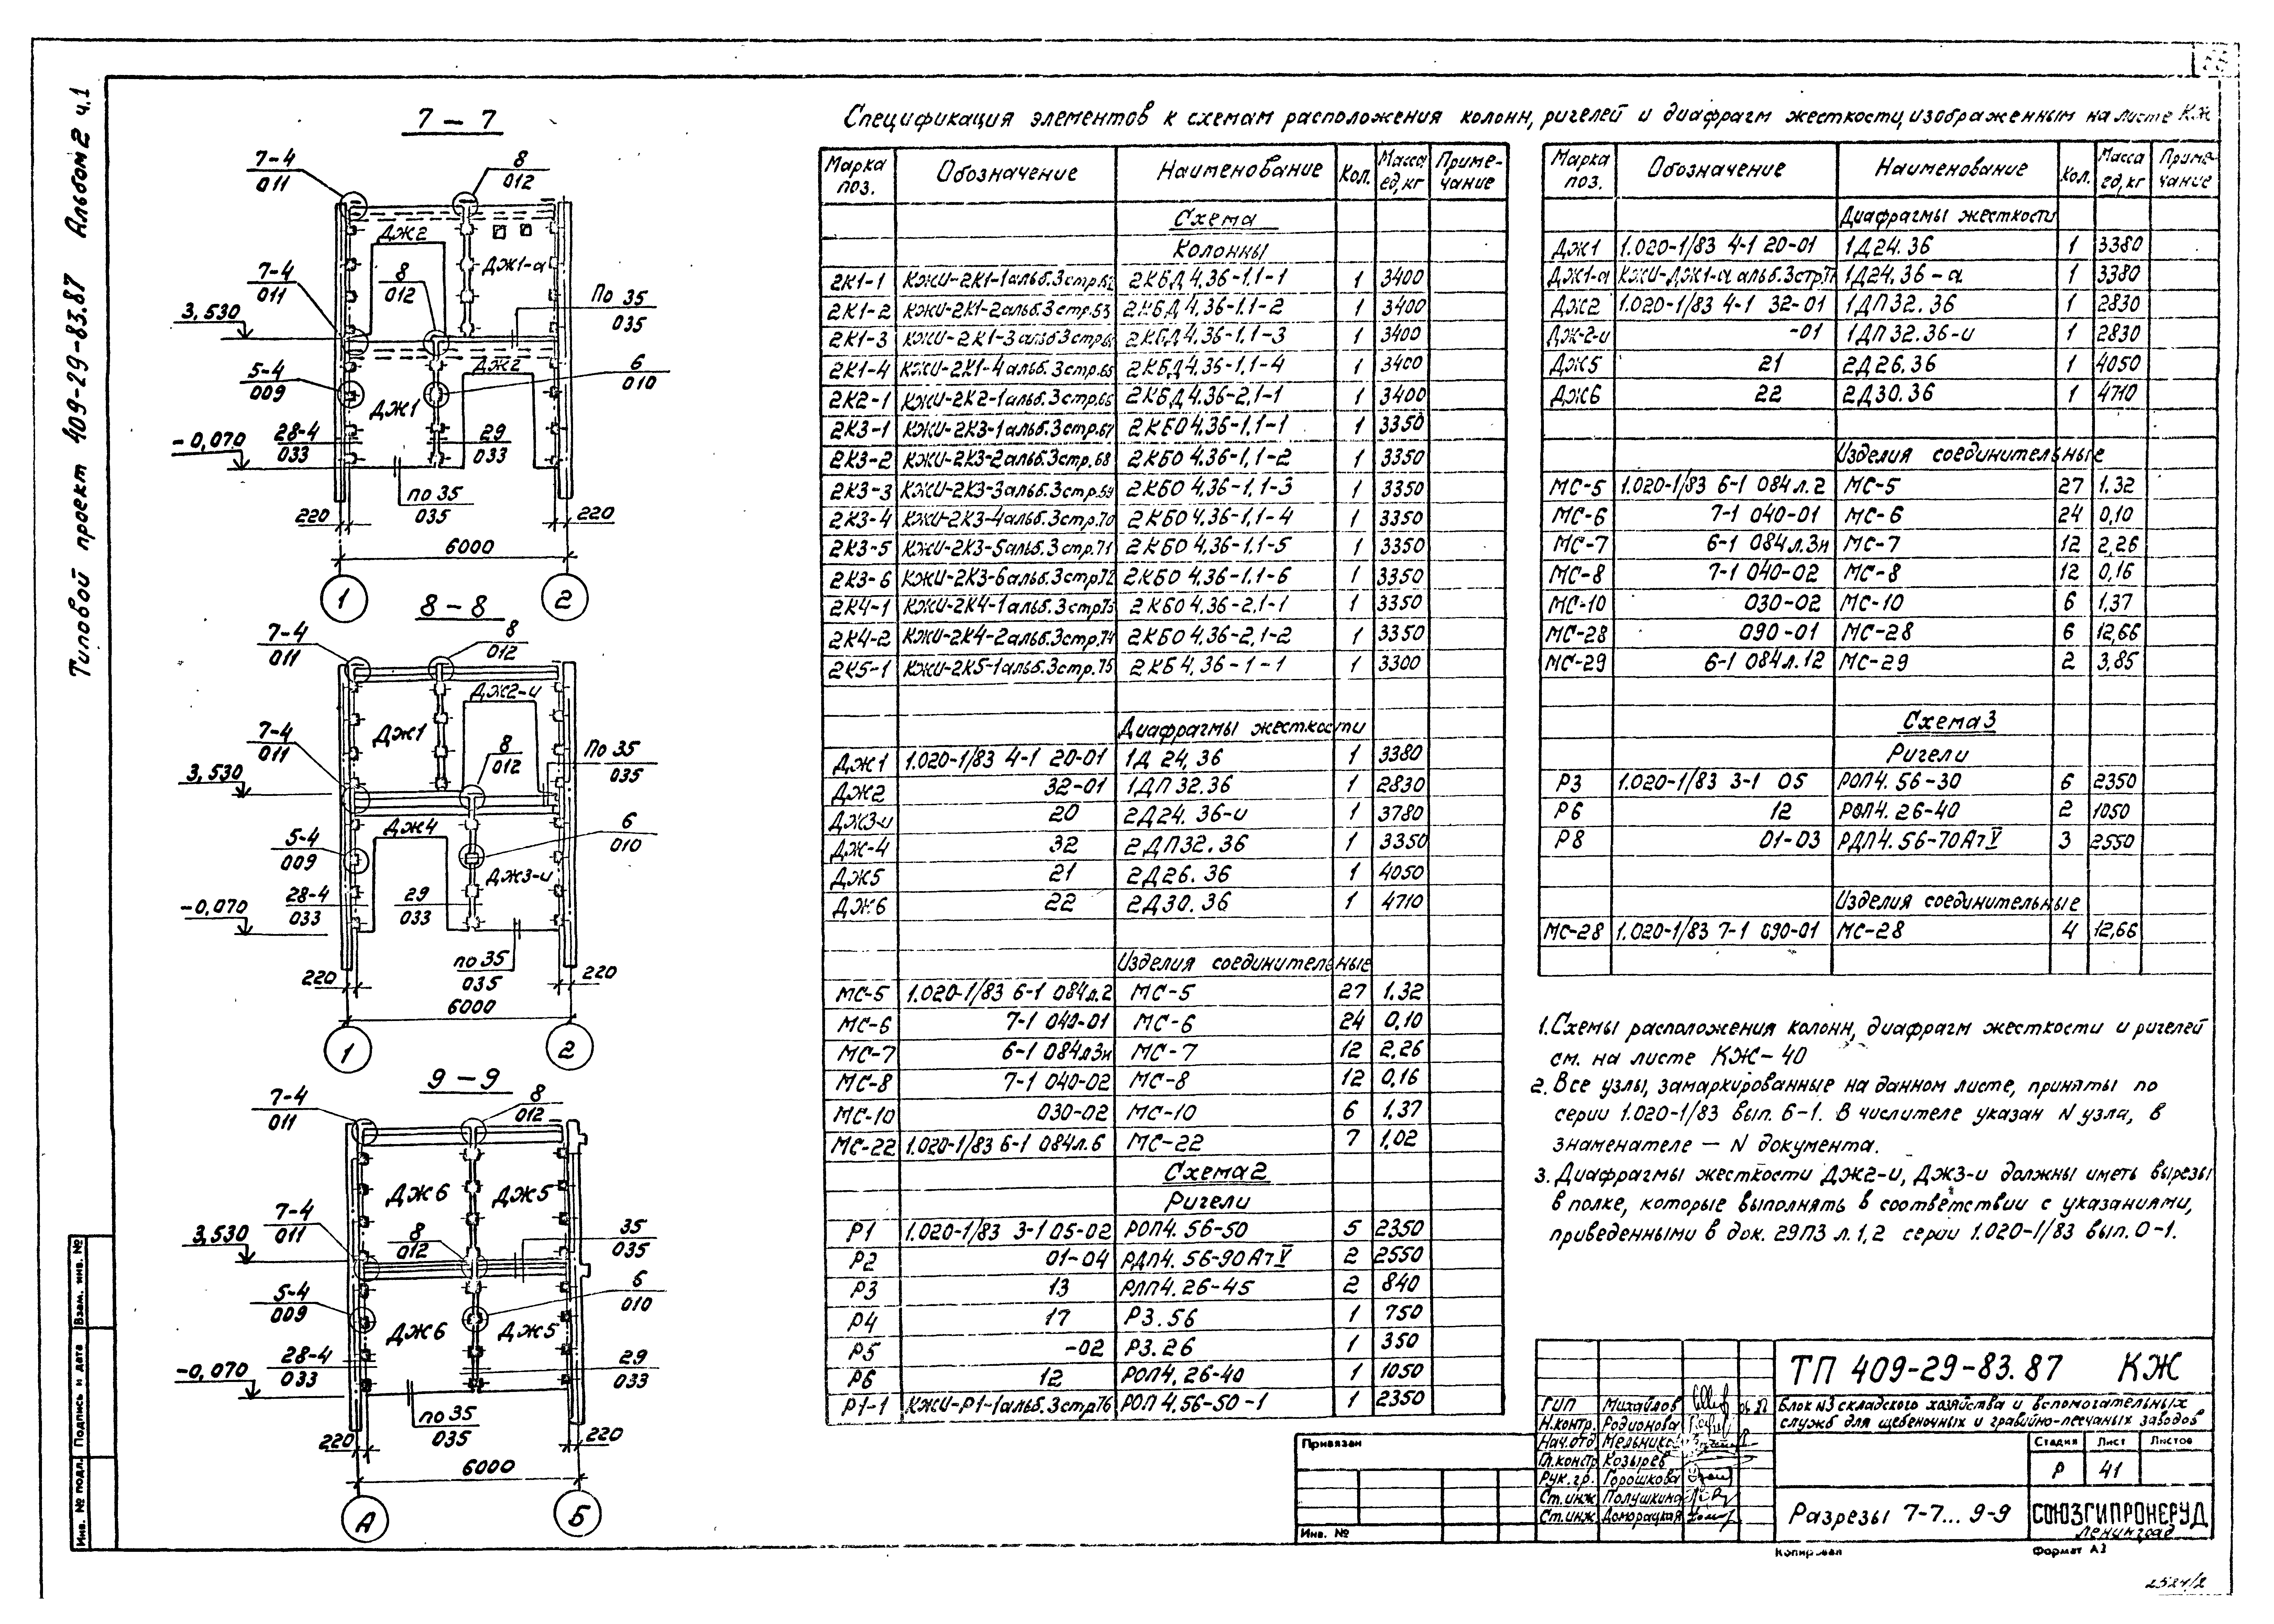 Типовой проект 409-29-83.87 Альбом 2 ч.1
Взам. инв. №
Подпись и дата
Инв. № подл.
7 – 7
7-4
011
8
012
ДЖ2
ДЖ1-а
7-4
011
8
012
По 35
035
3,530
5-4
009
ДЖ2
6
010
ДЖ1
-0,070
28-4
033
29
033
по 35
035
220
220
6000
1
2
8 – 8
7-4
011
8
012
ДЖ2-и
ДЖ1
7-4
011
8
012
По 35
035
3,530
ДЖ4
5-4
009
6
010
ДЖ3-и
28-4
033
29
033
-0,070
по 35
035
220
220
6000
1
2
9 – 9
7-4
011
8
012
ДЖ6
ДЖ5
7-4
011
8
012
35
035
3,530
5-4
009
6
010
ДЖ6
ДЖ5
28-4
033
29
033
-0,070
по 35
035
220
220
6000
А
Б
Спецификация элементов к схемам расположения колонн, ригелей и диафрагм жесткости, изображенным на листе КЖ
Марка поз. Обозначение Наименование Кол. Масса ед, кг Приме-чание
Схема
Колонны
2К1-1 КЖИ-2К1-1альб.3стр.62 2КБД 4.36-1.1-1 1 3400
2К1-2 КЖИ-2К1-2альб.3стр.63 2КБД 4.36-1.1-2 1 3400
2К1-3 КЖИ-2К1-3альб.3стр. 2КБД 4.36-1.1-3 1 3400
2К1-4 КЖИ-2К1-4альб.3стр.65 2КБД 4.36-1.1-4 1 3400
2К2-1 КЖИ-2К2-1альб.3стр.66 2КБД 4.36-2.1-1 1 3400
2К3-1 КЖИ-2К3-1альб.3стр.67 2КБО 4.36-1.1-1 1 3350
2К3-2 КЖИ-2К3-2альб.3стр.68 2КБО 4.36-1.1-2 1 3350
2К3-3 КЖИ-2К3-3альб.3стр.69 2КБО 4.36-1.1-3 1 3350
2К3-4 КЖИ-2К3-4альб.3стр.70 2КБО 4.36-1.1-4 1 3350
2К3-5 КЖИ-2К3-5альб.3стр.71 2КБО 4.36-1.1-5 1 3350
2К3-6 КЖИ-2К3-6альб.3стр72 2КБО 4.36-1.1-6 1 3350
2К4-1 КЖИ-2К4-1альб.3стр73 2КБО 4.36-2.1-1 1 3350
2К4-2 КЖИ-2К4-2альб.3стр.74 2КБО 4.36-2.1-2 1 3350
2К5-1 КЖИ-2К5-1альб.3стр.75 2КБ 4.36-1-1 1 3300
Диафрагмы жесткости
ДЖ1 1.020-1/83 4-1 20-01 1Д 24.36 1 3380
ДЖ2 32-01 1ДП 32.36 1 2830
ДЖ3-и 20 2Д24.36-и 1 3780
ДЖ-4 32 2ДП32.36 1 3350
ДЖ5 21 2Д26.36 1 4050
ДЖ6 22 2Д30.36 1 4710
Изделия соединительные
МС-5 1.020-1/83 6-1 084л.2 МС-5 27 1.32
МС-6 7-1 040-01 МС-6 24 0,10
МС-7 6-1 084л3н МС-7 12 2,26
МС-8 7-1 040-02 МС-8 12 0,16
МС-10 030-02 МС-10 6 1,37
МС-22 1.020-1/83 6-1 084л.6 МС-22 7 1,02
Схема2
Ригели
Р1 1.020-1/83 3-1 05-02 РОП4.56-50 5 2350
Р2 01-04 РДП4.56-90АтV 2 2550
Р3 13 РЛП4.26-45 2 840
Р4 17 Р3.56 1 750
Р5 -02 Р3.26 1 350
Р6 12 РОП4.26-40 1 1050
Р1-1 КЖИ-Р1-1альб.3стр76 РОП 4.56-50-1 1 2350
Марка поз. Обозначение Наименование Кол. Масса ед, кг Приме-чание
Диафрагмы жесткости
ДЖ1 1.020-1/83 4-1 20-01 1Д24.36 1 3380
ДЖ1-а КЖИ-ДЖ1-а альб.3стр77 1Д24.36-а 1 3380
ДЖ2 1.020-1/83 4-1 32-01 1ДП32.36 1 2830
ДЖ-2-и -01 1ДП32.36-и 1 2830
ДЖ5 21 2Д26.36 1 4050
ДЖ6 22 2Д30.36 1 4710
Изделия соединительные
МС-5 1.020-1/83 6-1 084л.2 МС-5 27 1.32
МС-6 7-1 040-01 МС-6 24 0,10
МС-7 6-1 084л.3н МС-7 12 2,26
МС-8 7-1 040-02 МС-8 12 0,16
МС-10 030-02 МС-10 6 1,37
МС-28 090-01 МС-28 6 12,66
МС-29 6-1 084л.12 МС-29 2 3,85
Схема3
Ригели
Р3 1.020-1/83 3-1 05 РОП4.56-30 6 2350
Р6 12 РОП4.26-40 2 1050
Р8 01-03 РДП4.56-70АтV 3 2550
Изделия соединительные
МС-28 1.020-1/83 7-1 090-01 МС-28 4 12,66
1. Схемы расположения колонн, диафрагм жесткости и ригелей
см. на листе КЖ-40
2. Все узлы, замаркированные на данном листе, приняты по
серии 1.020-1/83 вып. 6-1. В числителе указан N узла, в
знаменателе – N документа.
3. Диафрагмы жесткости ДЖ2-и, ДЖ3-и должны иметь вырезы
в полке, которые выполнять в соответствии с указаниями,
приведенными в док. 29ПЗ л.1,2 серии 1.020-1/83 вып. 0-1.
Привязан
Инв. №
ГИП Михайлов
Н.контр. Родионова
Нач.отд Мельников
Гл.констр Козырев
Рук.гр. Горошкова
Ст.инж Полушкина
Ст.инж Доморацкая
ТП 409-29-83.87 КЖ
Блок №3 складского хозяйства и вспомогательных
служб для щебеночных и гравийно-песчаных заводов
Стадия Лист Листов
Р 41
Разрезы 7-7... 9-9
СОЮЗГИПРОНЕРУД
Ленинград
Копировал
Формат А3
2521/2